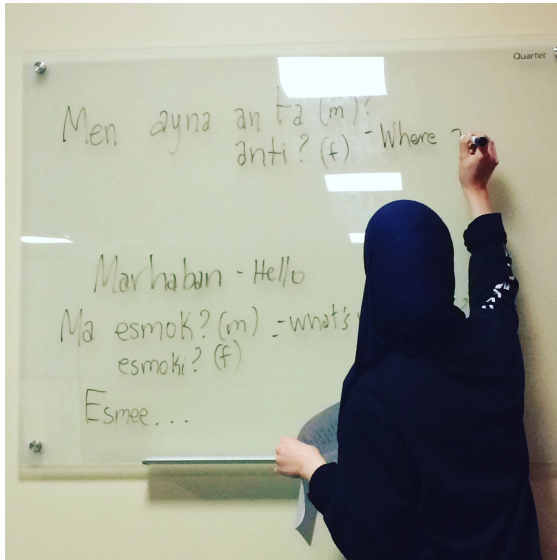 Quartet
Men ayna an ta (m)?
anti? (f) - Where
Marhaban - Hello
Ma esmok? (m) - what's ?
esmoki? (f)
Esmee...